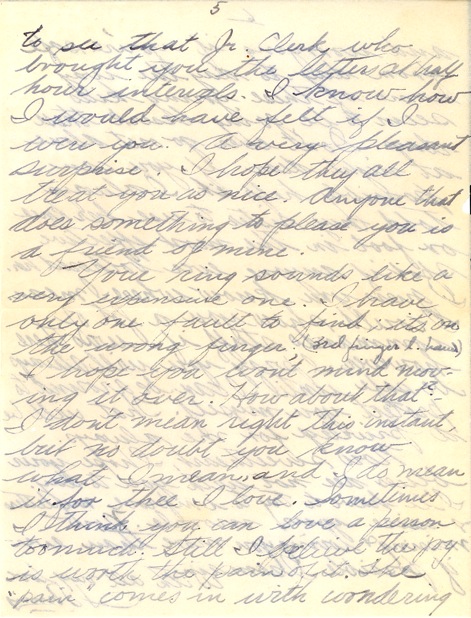 5
to see that Jr. Clerk who
brought you the letters at half
hour intervals. I know how
I would have felt if I
were you. A very pleasant
surprise. I hope they all
treat you as nice. Anyone that
does something to please you is
a friend of mine.
Your ring sounds like a
very expensive one. I have
only one fault to find, it's on
the wrong finger, (3rd finger l. hand)
I hope you won't mind mov-
ing it over. How about that?
I don't mean right this instant,
but no doubt you know
what I mean, and I do mean
it for thee I love. Sometimes
I think you can love a person
too much. Still I believe the joy
is worth the pain of it. The
"pain" comes in with wondering